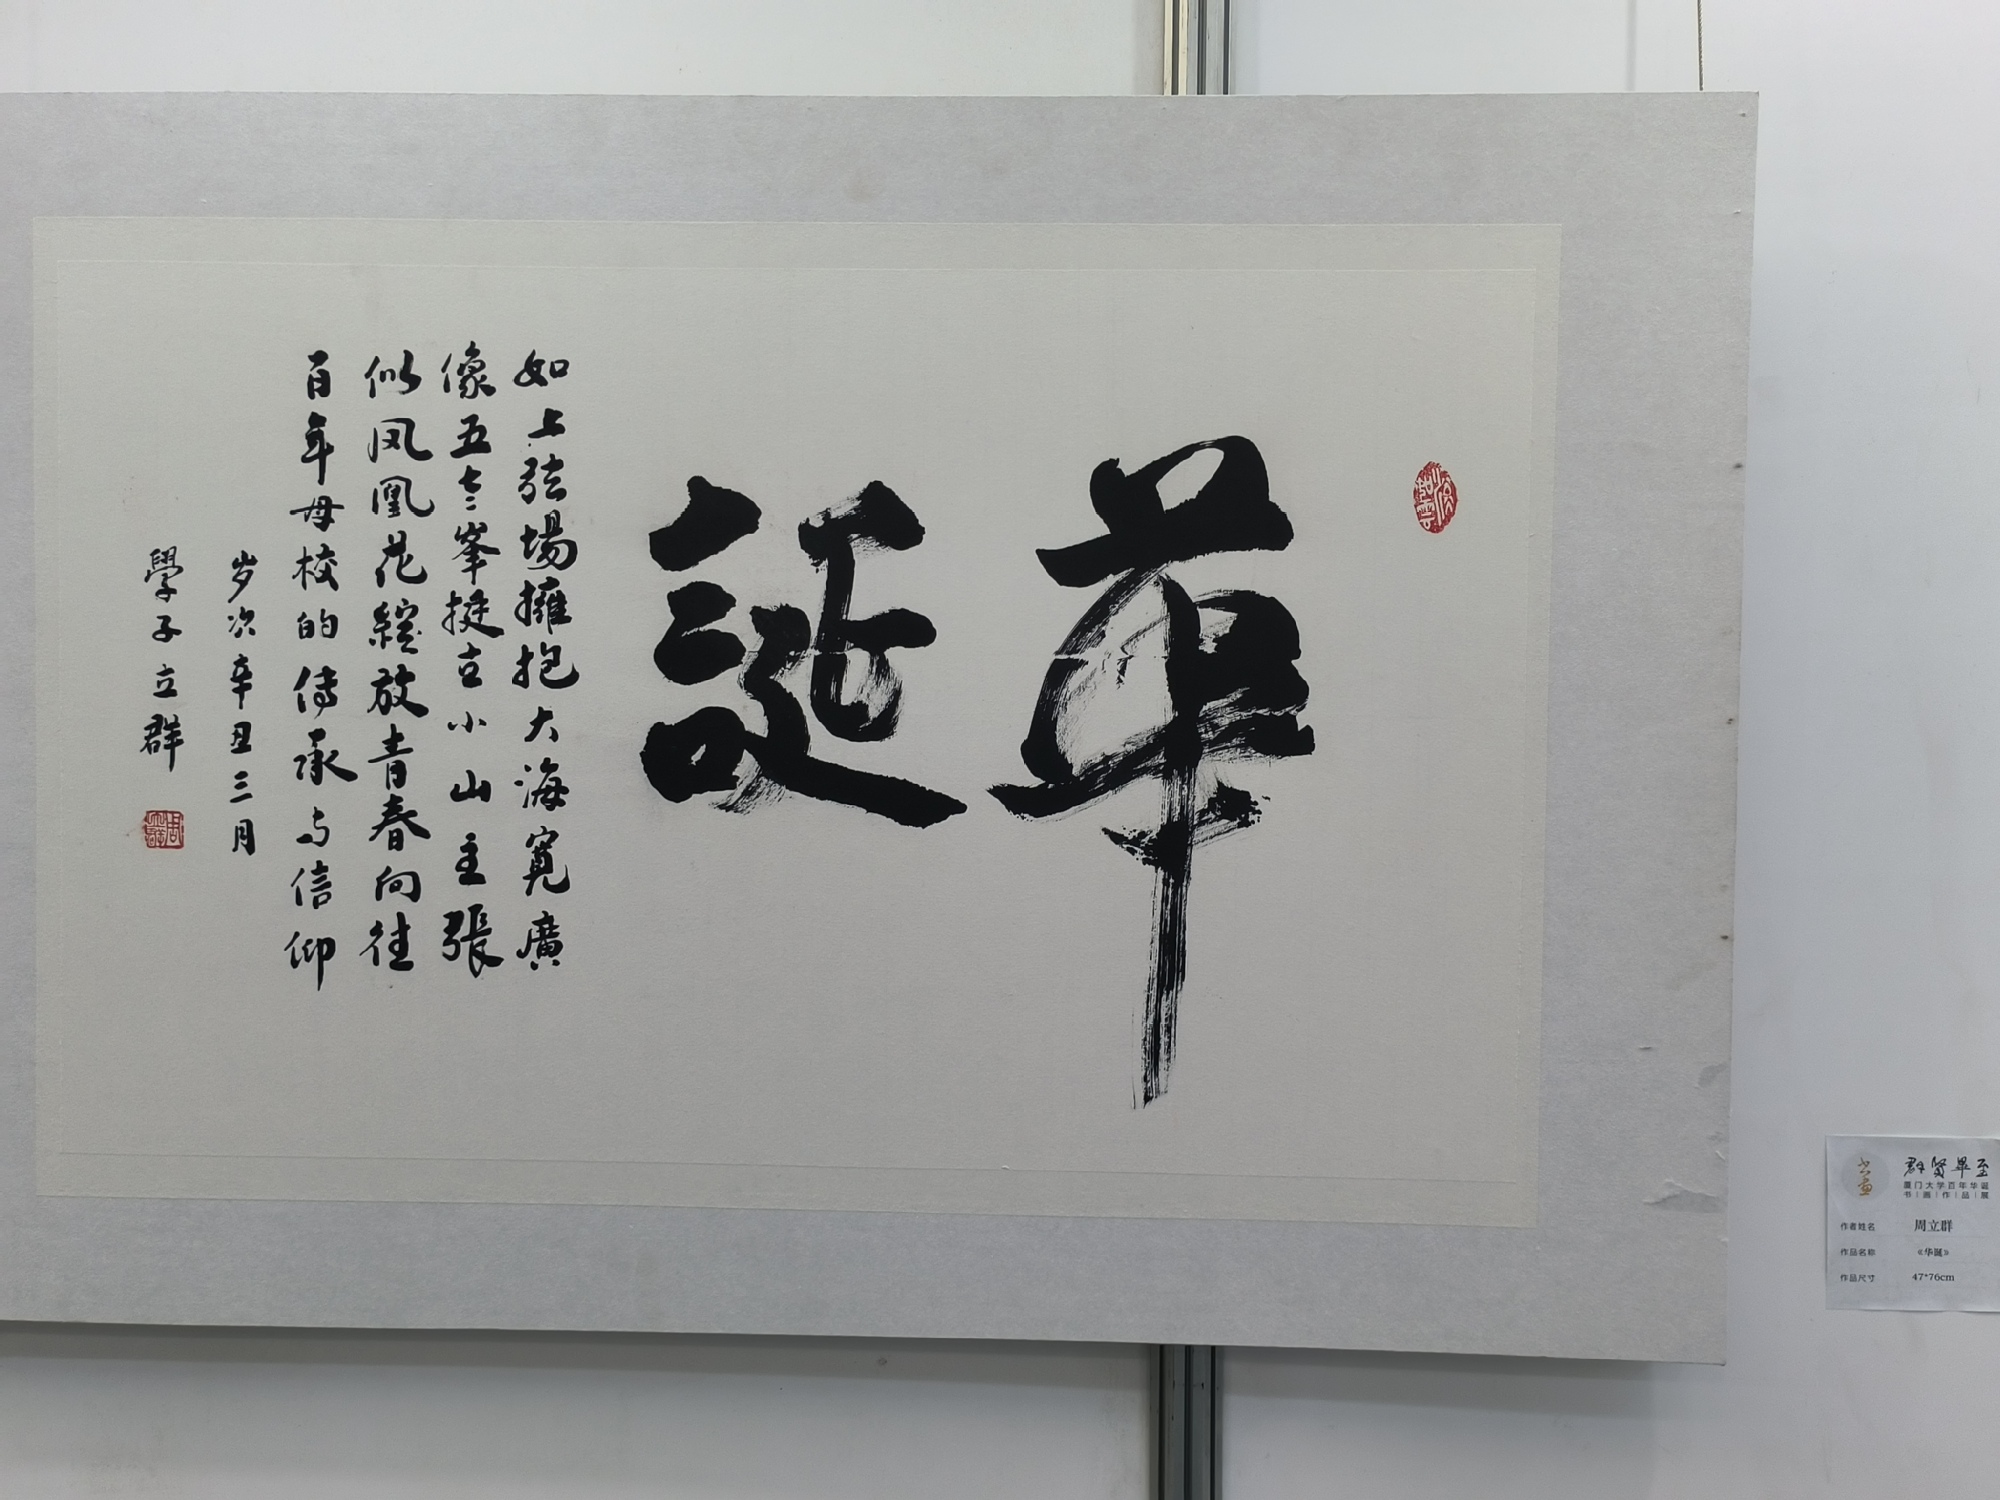 華誕
如上弦場擁抱大海寬廣
像五老峯挺立小山主張
似凤凰花綻放青春向往
百年母校的傳承与信仰
岁次辛丑三月
學子立群
群贤毕至
厦门大学百年华诞
书|画|作|品|展
作者姓名 周立群
作品名称 《华诞》
作品尺寸 47*76cm